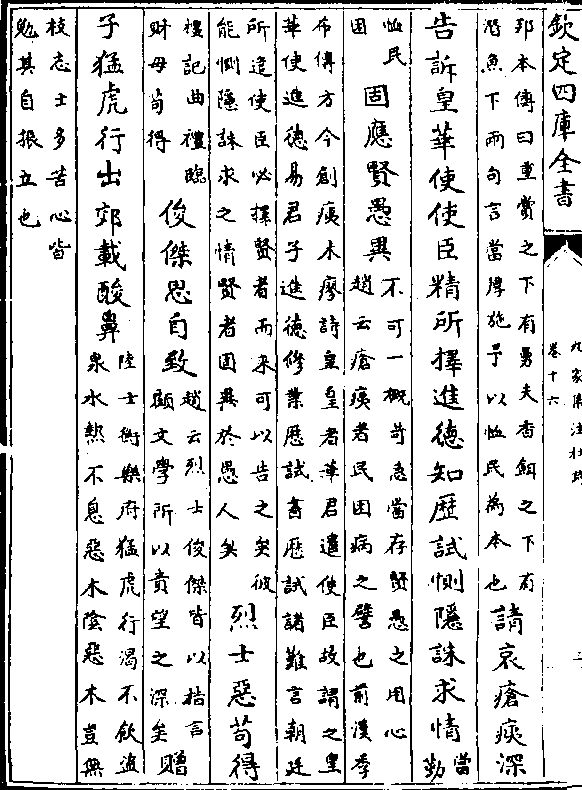 欽定四庫全書
九家集注杜詩
卷十六
三
邳本傳曰重賞之下有勇夫香餌之下有
潛魚下兩句言當厚施予以恤民為本也
請哀瘡痍深
告訴皇華使使臣精所擇進德知歷試惻隱誅求情
當
勤
恤民
困
固應賢愚異
不可一概苛急當存賢愚之用心
趙云瘡痍者民困病之譬也前漢季
布傳方今創痍未瘳詩皇皇者華君遣使臣故謂之皇
華使進德易君子進德修業歷試書歷試諸難言朝廷
所造使臣必擇賢者而来可以告之矣彼
能惻隱誅求之情賢者固異於愚人矣
烈士惡苟得
禮記曲禮臨
財毋苟得
俊傑思自致
趙云烈士俊傑皆以指言
顧文學所以責望之深矣
贈
子猛虎行出郊載酸鼻
陸士衡樂府猛虎行渴不飲盜
泉水熱不息惡木陰惡木豈無
枝志士多苦心皆
勉其自振立也